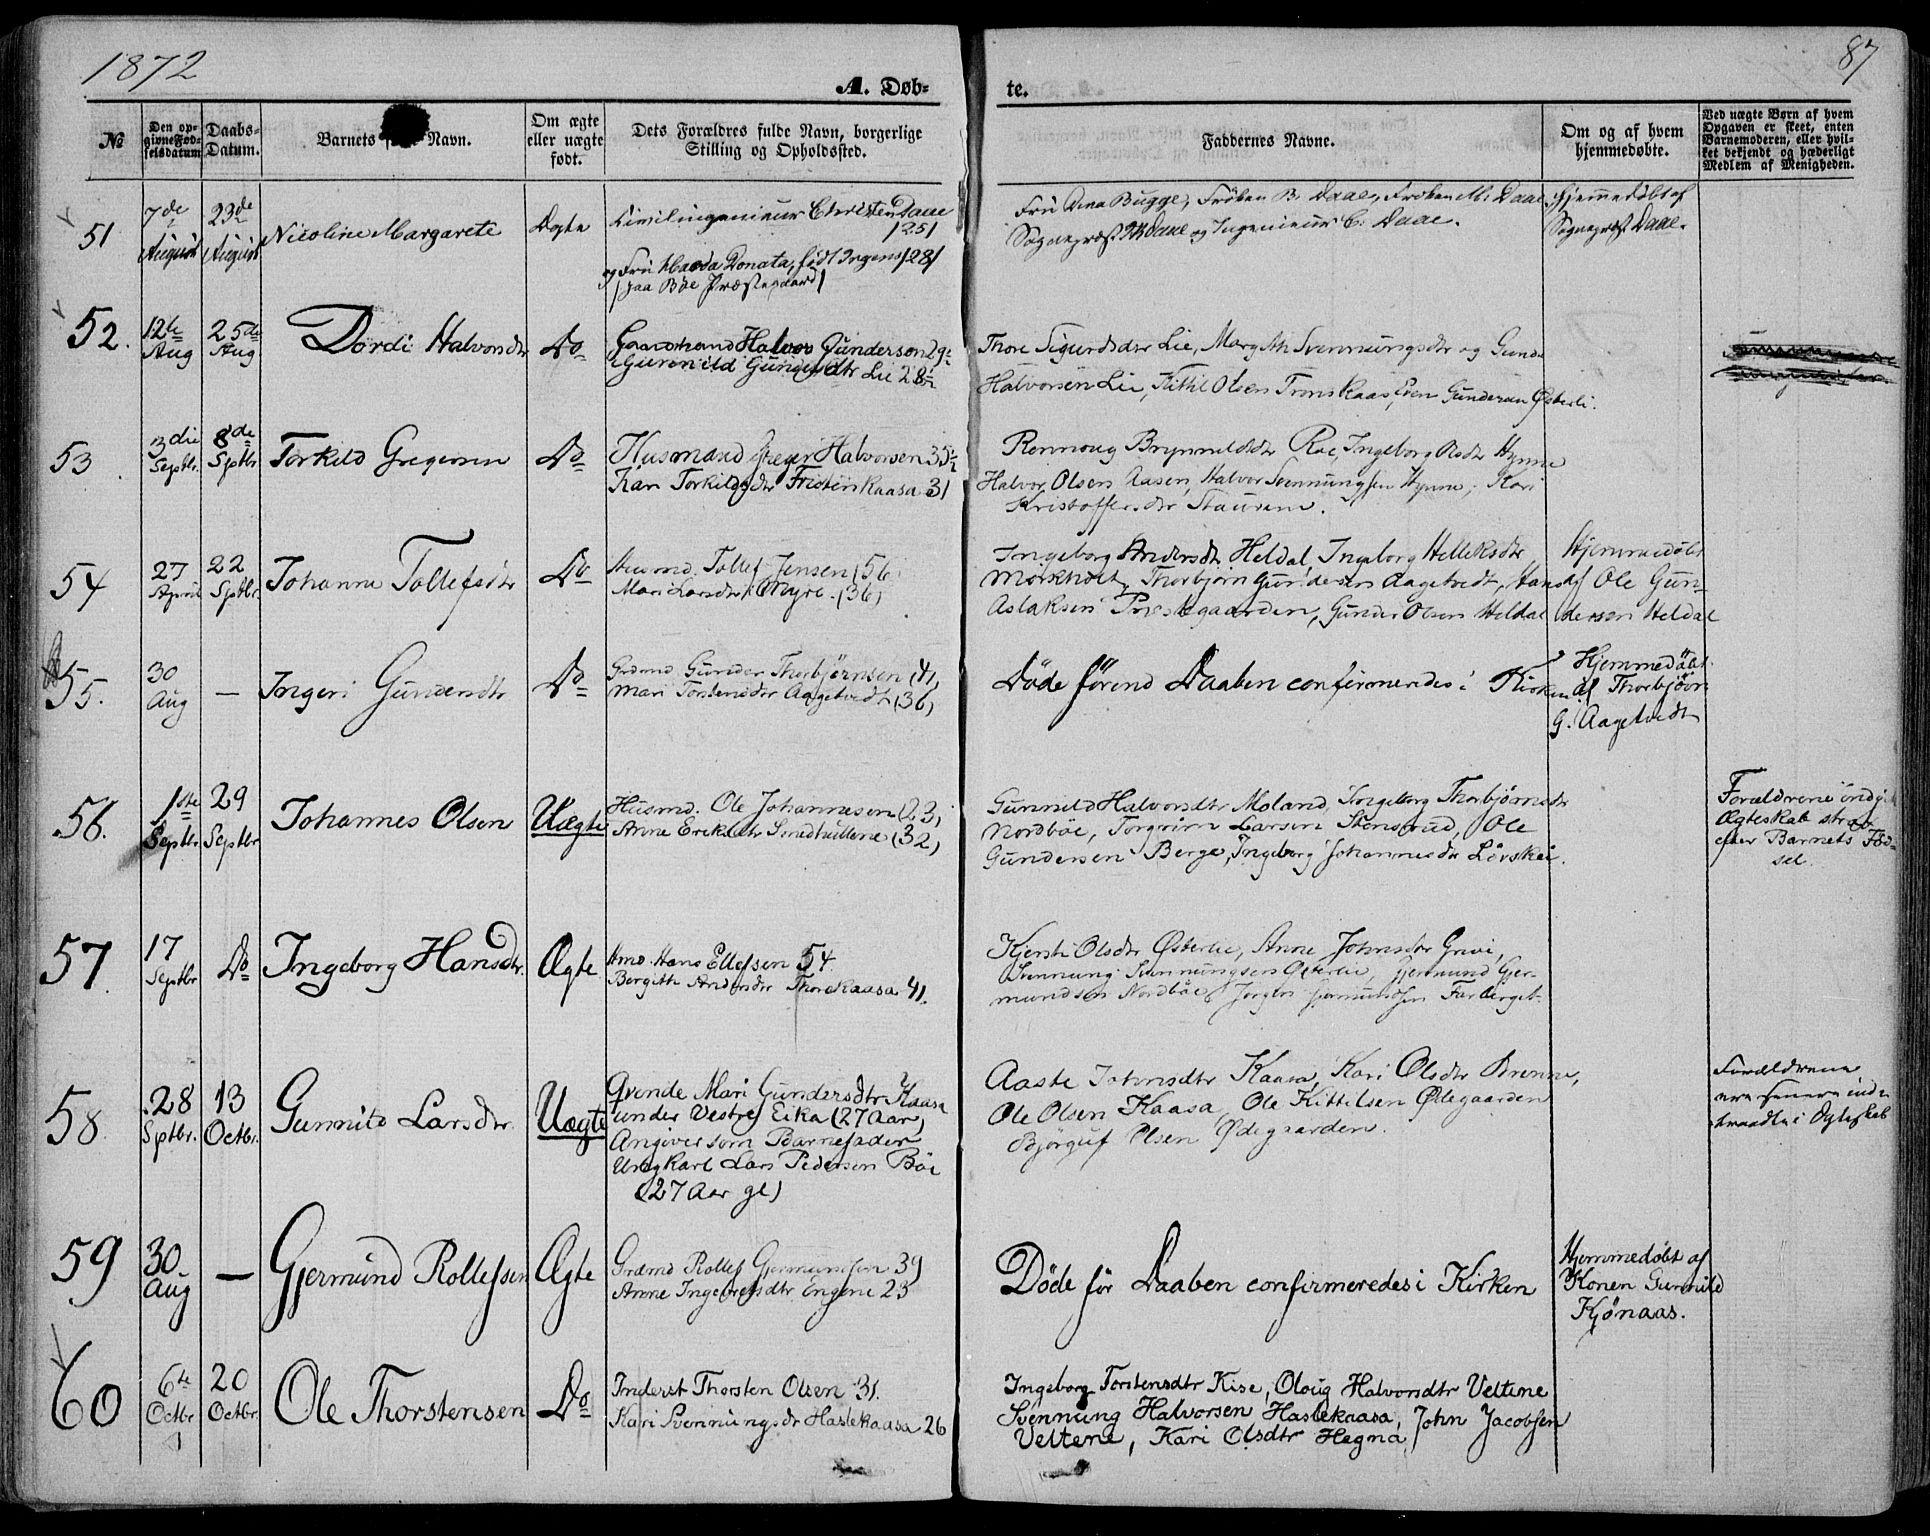 1872
87
A. Døb-
te.
№
Den op-
givne Fød-
selsdatum
Daabs-
Datum.
Barnets Navn.
Om ægte
eller uægte
født.
Dets Forældres fulde Navn, borgerlige
Stilling og Opholdssted.
Faddernes Navne.
Om og af hvem
hjemmedøbte.
Ved uægte Børn af hvem
Opgaven er skeet, enten
Barnemoderen, eller hvil-
ket bekjendt og hæderligt
Medlem af Menigheden.
51
7de
August
23de
August
Nicoline Margarete
Ægte
Civilingenieur Christen Daae
1251
og Fru Donata, født Irgens 1281
paa Böe Præstegaard
Fru Dina Bugge, Fröken B. Daae, Fröken M. Daae
Sognepræst Daae og Ingenieur C. Daae.
Hjemmedøbt af
Sognepræst Daae.
52.
12te
Aug
25de
Aug
Dordi Halvorsdtr
Do
Gaardmand Halvor Gunderson 29
Gurenild Gundersdtr Lie 28½
Thore Sigurdsdtr Lie, Margith Svennungsdtr og Gunder
Halvorsen Lie, Kittil Olsen Tronskaas, Even Gundersen Østerli.
53
3die
Septbr.
8de
Sptbr
Torkild Gregersen
Do
Husmand Greger Halvorsen 35½
Kari Torkildsdtr Fristenkaasa 31
Rennoug Brynnildsdtr Roe, Ingeborg Hynne
Halvor Olsen Aasen, Halvor Svennungsen Hynne, Kari
Kristoffersdtr Staurem.
54
27
April
22
Sptbr.
Johanne Tollefsdtr
Do
Husmd. Tollef Jensen (56)
Mari Larsdtr Myre. (36)
Ingeborg Andersdtr Heldal, Ingeborg Helleksdtr
Mörkholt, Thorbjörn Gundersen Aagetvedt, Hans
Aslaksen Præstegaarden, Gunder Olsen Heldal
Hjemmedøbt
af Ole Gun-
dersen Heldal
55.
30
Aug
—
Ingeri Gundersdtr
Do
Grdmd. Gunder Thorbjørnsen (41)
Mari Torstensdtr Aagetvedt (36)
Døde førend Daaben confirmeredes i Kirken
Hjemmedöbt
af Thorbjörn
G. Aagetvedt
56.
1ste
Septbr.
29
Septbr
Johannes Olsen
Uægte
Husmd. Ole Johannesen (23)
Anne Eriksdtr Smedhullene (32)
Gunnild Halvorsdtr Moland, Ingeborg Thorbjørnsdtr
Nordböe, Torgrim Larsen Stensrud, Ole
Gundersen Berge, Ingeborg Johannesdtr Lövskei.
Forældrene indgik
Ægteskab strax
efter Barnets Fød-
sel.
57.
17
Septbr
Do
Ingeborg Hansdtr.
Ægte
Hmd. Hans Ellefsen 54.
Bergith Andersdtr Thorekaasa 41.
Kjersti Olsdtr Østerlie, Anne Johnsdtr Grivi,
Svennung Svennungsen Østerlie, Gjermund Gjer-
mundsen Nordböe, Jørgen Gjermundsen Farberget.
58
28
Sptbr.
13
Octbr.
Gunnild Larsdtr.
Uægte
Grende Mari Gundersdtr Kaasa
under Vestre Eika (27 Aar)
Angiver som Barnefader
Ungkarl Lars Pedersen Böe
(27 Aar gl)
Aaste Johnsdtr Kaasa, Kari Olsdtr Brenne,
Ole Olsen Kaasa, Ole Kittilsen Ødegaarden
Bjørguf Olsen Ødegaarden.
Forældrene
ere senere ind-
traadte i Ægteskab
59
30
Aug
—
Gjermund Rollefsen
Ægte
Grdmd Rollef Gjermundsen 39
Anne Ingebretsdtr Engene 23
Døde før Daaben confirmeredes i Kirken
Hjemmedøbt af
Konen Gunnild
Kjønaas.
60
6te
Octbr
20
Octbr.
Ole Thorstensen
Do
Inderst Thorsten Olsen 31.
Kari Svennungsdr Haslekaasa 26
Ingeborg Torstensdtr Kise, Oloug Halvorsdtr Veltene
Svennung Halvorsen Haslekaasa, John Jacobsen
Veltene, Kari Olsdtr Hegna